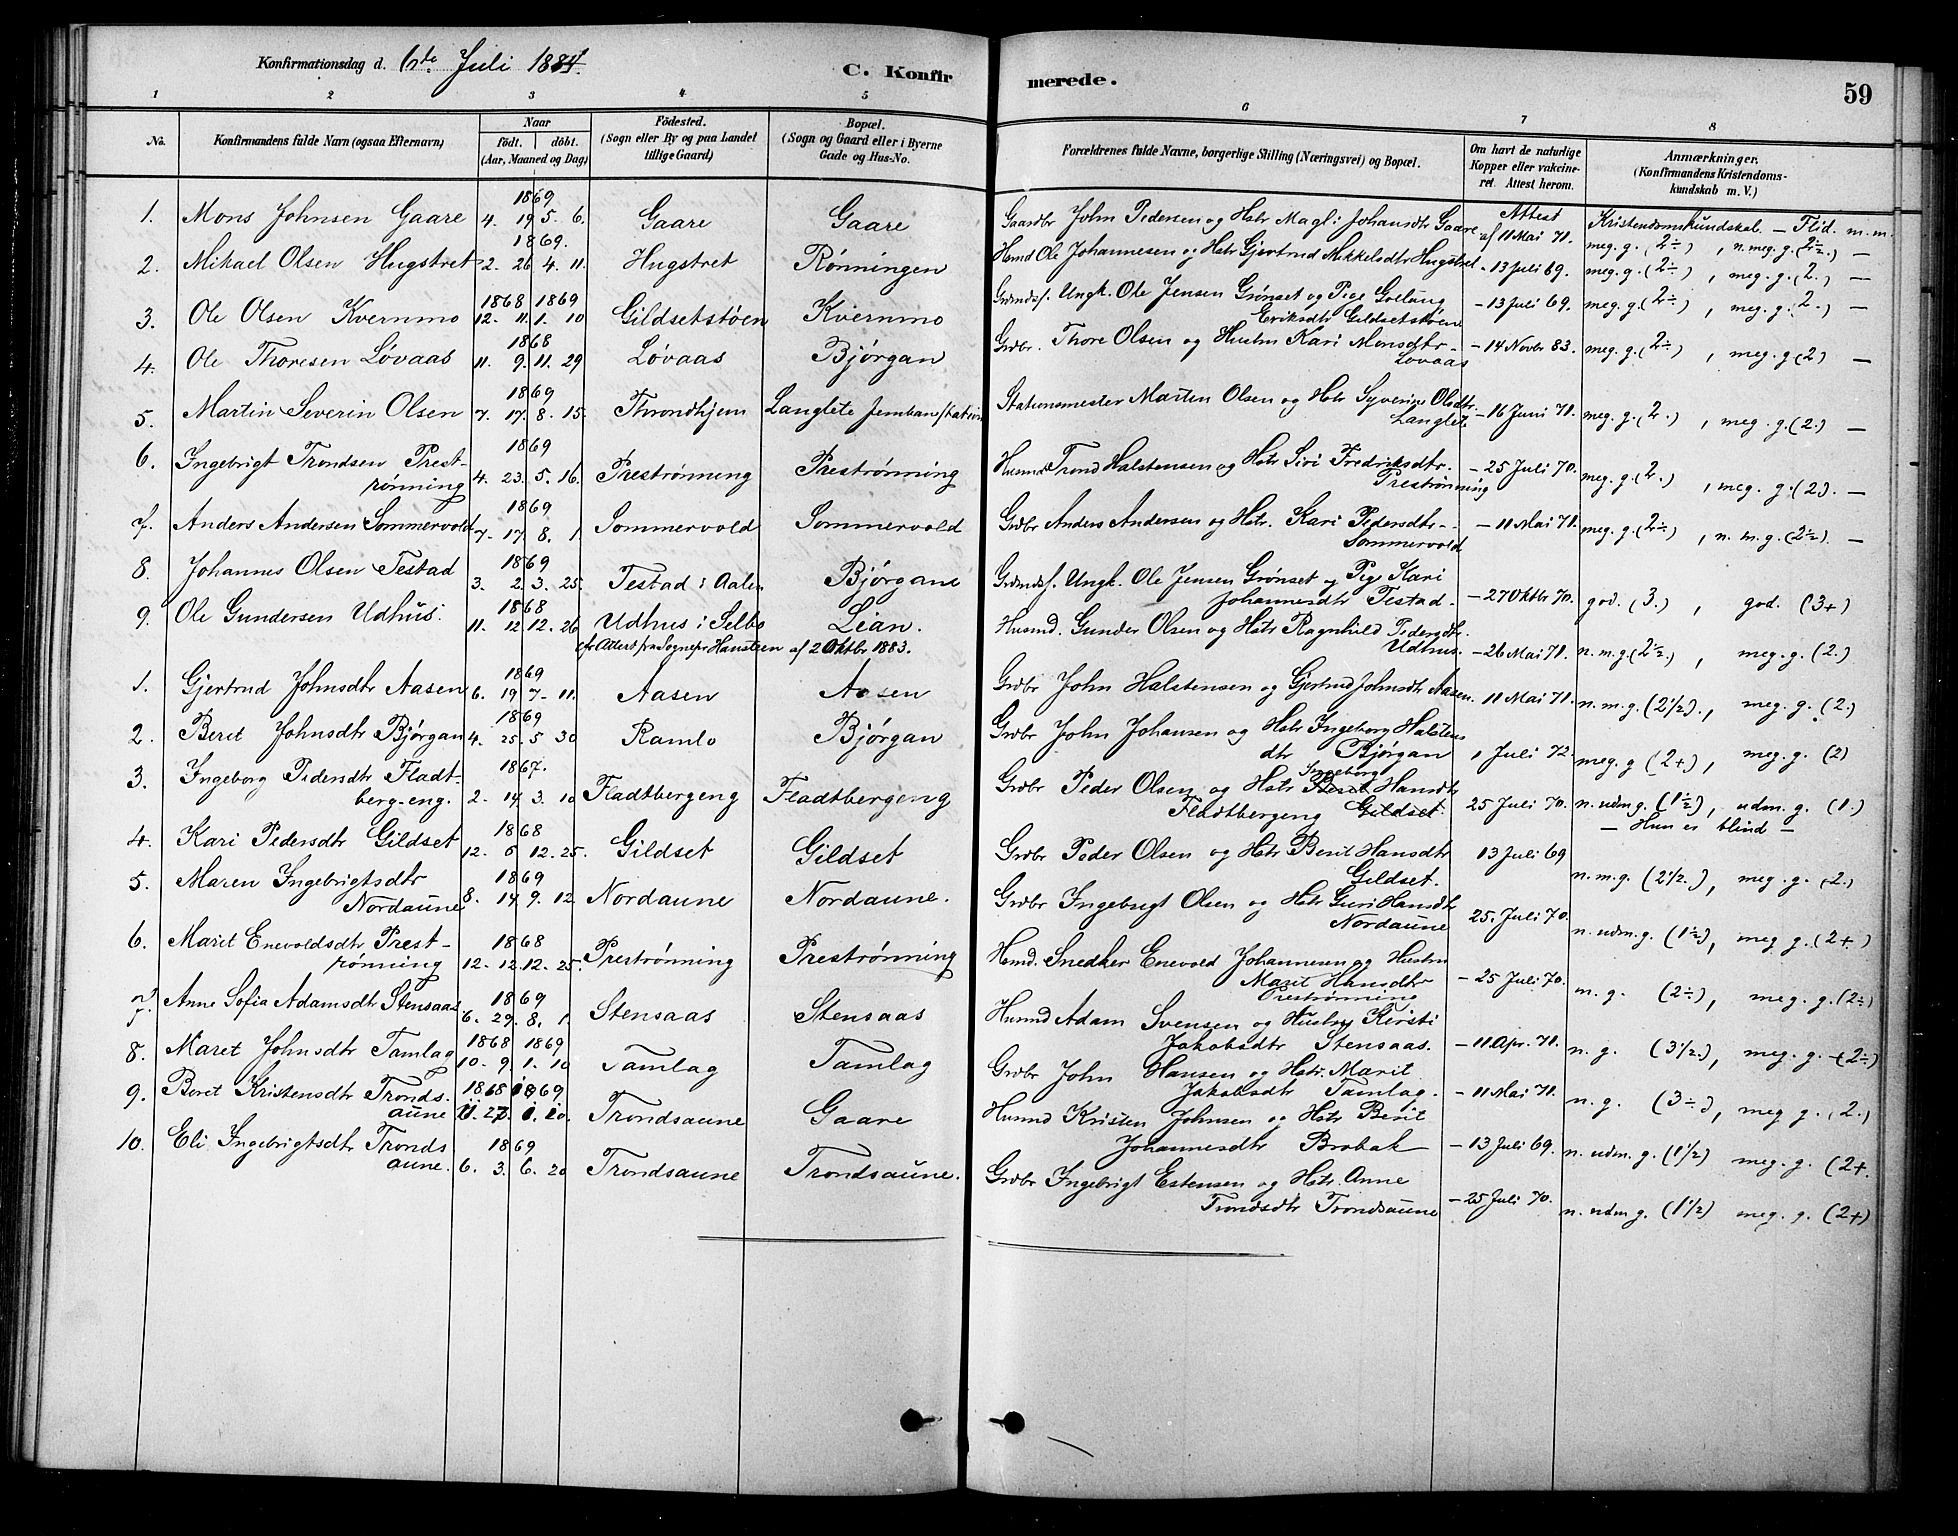 Konfirmationsdag d. 6te Juli 1884.
C. Konfirmerede.
59
1 2 3 4 5 6 7 8
No.
Konfirmandens fulde Navn (ogsaa Efternavn)
Naar
födt. döbt.
(Aar, Maaned og Dag)
Födested.
(Sogn eller By og paa Landet tillige Gaard)
Bopæl.
(Sogn og Gaard eller i Byerne Gade og Hus-No.
Forældrenes fulde Navne, borgerlige Stilling (Næringsvei) og Bopæl.
Om havt de naturlige Kopper eller vakcineret. Attest herom.
Anmærkninger.
(Konfirmandens Kristendomskundskab m. V.)
1869
1. Mons Johnsen Gaare 4. 19 5. 6. Gaare Gaare Gaardbr John Pedersen og Hstr Magli Johansdtr Gaare Attest af 11 Mai 71. Kristendomskundskab. — Flid. m. m.
meg. g. (2÷) , n. meg. g. (2½.) —
1869.
2. Mikael Olsen Hugstret 2. 26 4. 11. Hugstret Rönningen Hsmd Ole Johannesen og Hstr Gjertrud Mikkelsdtr Hugstret - 13 Juli 69. meg. g. (2÷) , meg. g. (2.) —
1868 1869
3. Ole Olsen Kvernmo 12. 11. 1. 10 Gildsetstöen Kvernmo Grændsf. Ungk. Ole Jensen Grönset og Pige Goelung
Eriksdtr Gildsetstöen - 13 Juli 69. meg. g. (2÷) , meg. g. (2.) —
1868
4. Ole Thoresen Lövaas 11. 9. 11. 29 Lövaas Bjørgan Grdbr. Thore Olsen og Hustru Kari Monsdtr
Lövaas - 14 Novbr 83. meg. g. (2÷) , meg. g (2) —
1869
5. Martin Severin Olsen 7. 17. 8. 15. Throndhjem Langlete Jernbanestation Stationsmester Morten Olsen og Hstr Syverine Olsdtr.
Langlete - 16 Juni 71. meg. g. (2.) , meg. g. (2.) —
1869
6. Ingebrigt Trondsen Prest-
rönning 4. 23. 5. 16. Preströnning Preströnning Husmd Trond Halstensen og Hstr Siri Fredriksdtr.
Preströnning - 25 Juli 70. meg. g. (2.) , meg. g. (2). —
1869
7. Anders Andersen Sommervold 7. 17. 8. 1. Sommervold Sommervold Grdbr Anders Andersen og Hstr. Kari Pedersdtr
Sommervold - 11 Mai 71. meg. g. (2÷) , n. m. g. (2½). —
1869
8. Johannes Olsen Testad 3. 2. 3. 25. Testad i Aalen Bjørgan Grændsf. Ungk. Ole Jensen Grønset og Pige Kari
Johannesdtr Testad - 27 Oktbr 70. god. (3.) , god. (3+)
1868
9. Ole Gundersen Udhus. 11. 12 12. 26 Udhus i Selbo Lian. Husmd. Gunder Olsen og Hstr Ragnhild Pedersdtr.
efr Attest fra Sognepr Hansteen af 2 Oktbr 1883. Udhus. - 26 Mai 71. n. m. g. (2½.) , meg. g. (2.)
1869
1. Gjertrud Johnsdtr Aasen 6. 19 7. 11. Aasen Aasen Grdbr John Halstensen og Gjertrud Johnsdtr Aasen. 11 Mai 71. n. m. g. (2½)., meg. g. (2.)
1869
2. Beret Johnsdtr Bjørgan 4. 25. 5 30 Ramlo Bjørgan Grdbr John Johansen og Hstr Ingeborg Halstens
dtr Bjørgan 1 Juli 72. meg. g (2+), meg. g. (2)
1867.
3. Ingeborg Pedersdtr Fladt-
berg-eng. 2. 14 3. 10 Fladtbergeng Fladtbergeng Grdbr Peder Olsen og Hstr Ingeborg Berit Hansdtr
Fladtbergeng Gildset. 25 Juli 70. n. udm. g. (1½), udm. g. (1.)
— Hun er blind —
1868
4. Kari Pedersdtr Gildset 12. 5 12. 25. Gildset Gildset Grdbr Peder Olsen og Hstr Berit Hansdtr
Gildset. 13 Juli 69 n. m. g. (2½.), meg. g. (2.)
1869
5. Maren Ingebrigtsdtr
Nordaune 8. 14. 9. 12. Nordaune Nordaune. Grdbr Ingebrigt Olsen og Hstr Guri Hansdtr
Nordaune 25. Juli 70. n. udm. g. (1½), meg. g. (2+)
1868
6. Marit Enevoldsdtr Prest-
rönning 12. 12. 12. 25. Preströnning Preströnning Hsmd. Snedker Enevold Johannesen og Hustru
Marit Hansdtr
Preströnning - 25 Juli 70. m. g. (2÷), meg. g. (2÷)
1869
7. Anne Sofia Adamsdtr Stensaas 6. 29. 8. 1. Stensaas Stensaas Husmd Adam Svensen og Hustru Kirsti
Jakobsdtr Stensaas. - 11 Apr. 71. n. g. (3½.), meg. g. (2÷)
1868 1869
8. Maret Johnsdtr Tamlag 10. 9. 1. 10 Tamlag Tamlag Grdbr John Hansen og Hstr. Marit
Jakobsdtr Tamlag. - 11 Mai 71. n. g. (3÷), meg. g. (2.)
1868 1869
9. Beret Kristensdtr Tronds-
aune 11. 27. 1. 10. Trondsaune Gaare Husmd Kristen Johnsen og Hstr Berit
Johannesdtr Brobak - 13 Juli 69. n. udm. g. (1½) meg. g. (2+.
1869
10. Eli Ingebrigtsdtr Tronds
aune. 6. 3. 6. 20 Trondsaune Trondsaune. Grdbr Ingebrigt Estensen og Hstr. Anne
Trondsdtr Trondsaune - 25 Juli 70. n. udm. g. (1½) meg. g. (2+)